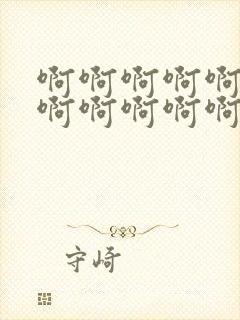 啊啊啊啊啊
啊啊啊啊啊
守崎